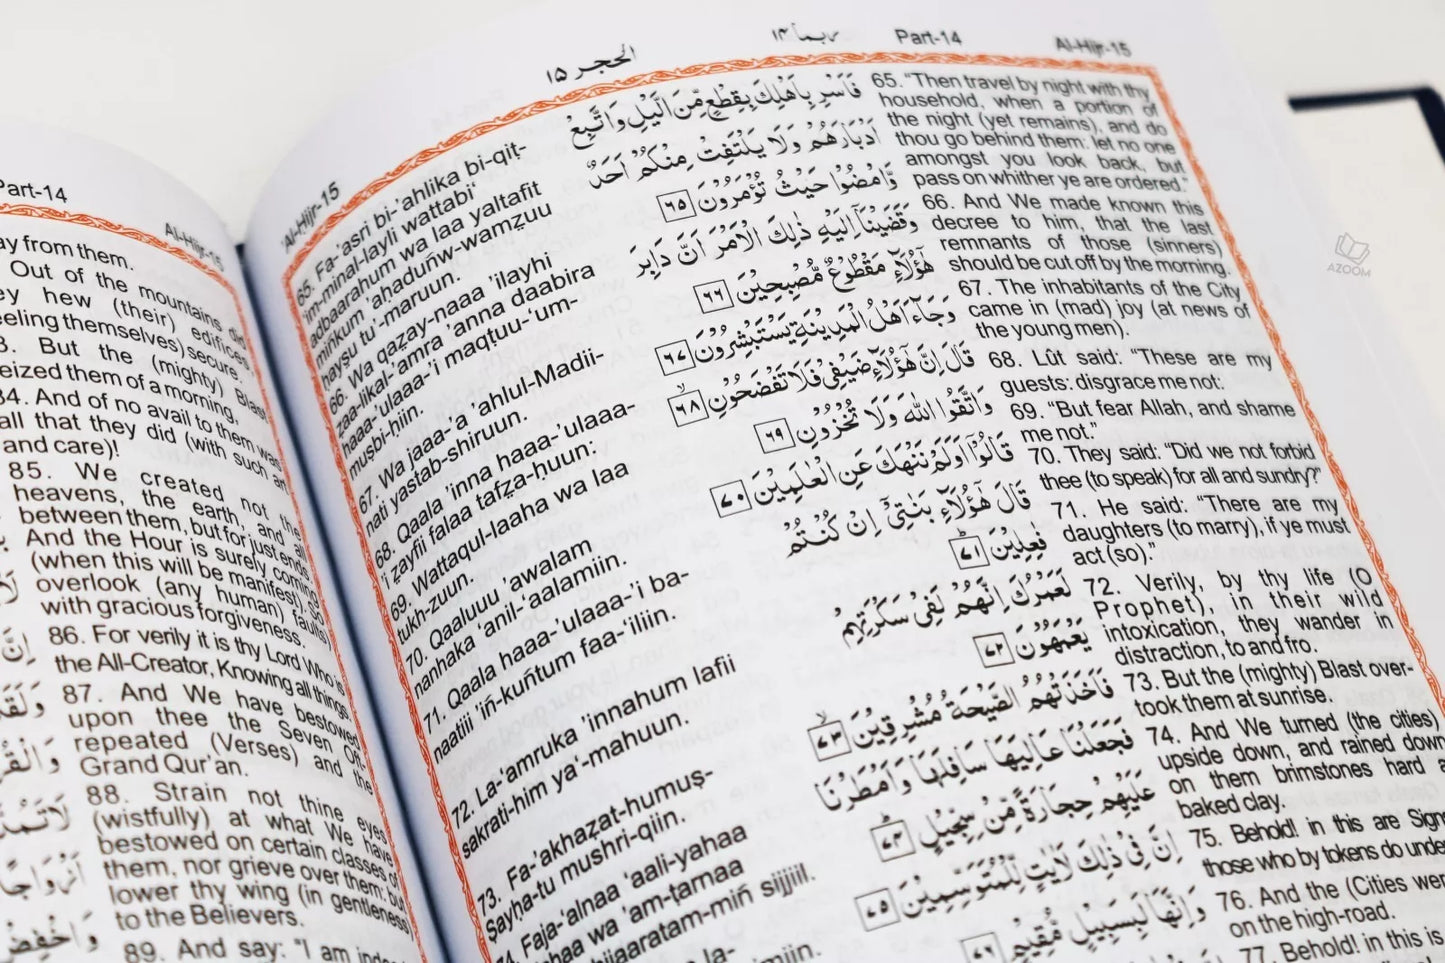 Part-14
Al-Hijr-15
ay from them.
Out of the mountains did
ey hew (their) edifices,
eeling themselves) secure.
3. But the (mighty) Blast
eized them of a morning,
84. And of no avail to them was
all that they did (with such art
and care)!
85. We created not the
heavens, the earth, and all
between them, but for just ends.
And the Hour is surely coming
(when this will be manifest). So
overlook (any human) faults
with gracious forgiveness.
86. For verily it is thy Lord Who is
the All-Creator, Knowing all things.
87. And We have bestowed
upon thee the Seven Oft-
repeated (Verses) and the
Grand Qur'an.
88. Strain not thine eyes
(wistfully) at what We have
bestowed on certain classes of
them, nor grieve over them: but
lower thy wing (in gentleness)
to the Believers.
89. And say: "I am indeed
'Al-Hijr-15
الحجر ۱۵
ربما ۱۴
Part-14
Al-Hijr-15
65. Fa-'asri bi-'ahlika bi-qiṭ-
'im-minal-layli wattabi'
adbaarahum wa laa yaltafit
miñkum 'aḥaduñw-wamẓuu
haysu tu'-maruun.
66. Wa qazay-naaa 'ilayhi
ẓaa-likal-'amra 'anna daabira
haaa-'ulaaa-'i maqṭuu-'um-
musbi-ḥiin.
67. Wa jaaa-'a 'ahlul-Madii-
nati yastab-shiruun.
68. Qaala 'inna haaa-'ulaaa-
'i ẓayfii falaa tafẓa-ḥuun;
69. Wattaqul-laaha wa laa
tukh-zuun.
70. Qaaluuu 'awalam
nanhaka 'anil-'aalamiin.
71. Qaala haaa-'ulaaa-'i ba-
naatiii 'iñ-kuñtum faa-'iliin.
72. La-'amruka 'innahum lafii
sakrati-him ya'-mahuun.
73. Fa-'akhaẓat-humuṣ-
Ṣayḥa-tu mushri-qiin.
74. Faja-'alnaa 'aali-yahaa
haa wa 'am-ṭarnaa
hijaaratam-miñ sijjiil.
فَاَسْرِ بِاَهْلِكَ بِقِطْعٍ مِّنَ الَّيْلِ وَاتَّبِعْ
اَدْبَارَهُمْ وَلَا يَلْتَفِتْ مِنْكُمْ اَحَدٌ
وَّامْضُوْا حَيْثُ تُؤْمَرُوْنَ ٦٥
وَقَضَيْنَآ اِلَيْهِ ذٰلِكَ الْاَمْرَ اَنَّ دَابِرَ
هٰٓؤُلَآءِ مَقْطُوْعٌ مُّصْبِحِيْنَ ٦٦
وَجَآءَ اَهْلُ الْمَدِيْنَةِ يَسْتَبْشِرُوْنَ ٦٧
قَالَ اِنَّ هٰٓؤُلَآءِ ضَيْفِيْ فَلَا تَفْضَحُوْنِ ٦٨
وَاتَّقُوا اللّٰهَ وَلَا تُخْزُوْنِ ٦٩
قَالُوْٓا اَوَلَمْ نَنْهَكَ عَنِ الْعٰلَمِيْنَ ٧٠
قَالَ هٰٓؤُلَآءِ بَنٰتِيْٓ اِنْ كُنْتُمْ
فٰعِلِيْنَ ٧١
لَعَمْرُكَ اِنَّهُمْ لَفِيْ سَكْرَتِهِمْ
يَعْمَهُوْنَ ٧٢
فَاَخَذَتْهُمُ الصَّيْحَةُ مُشْرِقِيْنَ ٧٣
فَجَعَلْنَا عَالِيَهَا سَافِلَهَا وَاَمْطَرْنَا
عَلَيْهِمْ حِجَارَةً مِّنْ سِجِّيْلٍ ٧٤
اِنَّ فِيْ ذٰلِكَ لَاٰيٰتٍ لِّلْمُتَوَسِّمِيْنَ ٧٥
وَاِنَّهَا لَبِسَبِيْلٍ مُّقِيْمٍ ٧٦
65. "Then travel by night with thy
household, when a portion of
the night (yet remains), and do
thou go behind them: let no one
amongst you look back, but
pass on whither ye are ordered."
66. And We made known this
decree to him, that the last
remnants of those (sinners)
should be cut off by the morning.
67. The inhabitants of the City
came in (mad) joy (at news of
the young men).
68. Lût said: "These are my
guests: disgrace me not:
69. "But fear Allah, and shame
me not."
70. They said: "Did we not forbid
thee (to speak) for all and sundry?"
71. He said: "There are my
daughters (to marry), if ye must
act (so)."
72. Verily, by thy life (O
Prophet), in their wild
intoxication, they wander in
distraction, to and fro.
73. But the (mighty) Blast over-
took them at sunrise.
74. And We turned (the cities)
upside down, and rained down
on them brimstones hard a
baked clay.
75. Behold! in this are Signs
those who by tokens do under
76. And the (Cities were
on the high-road.
77. Behold! in this is
AZOOM